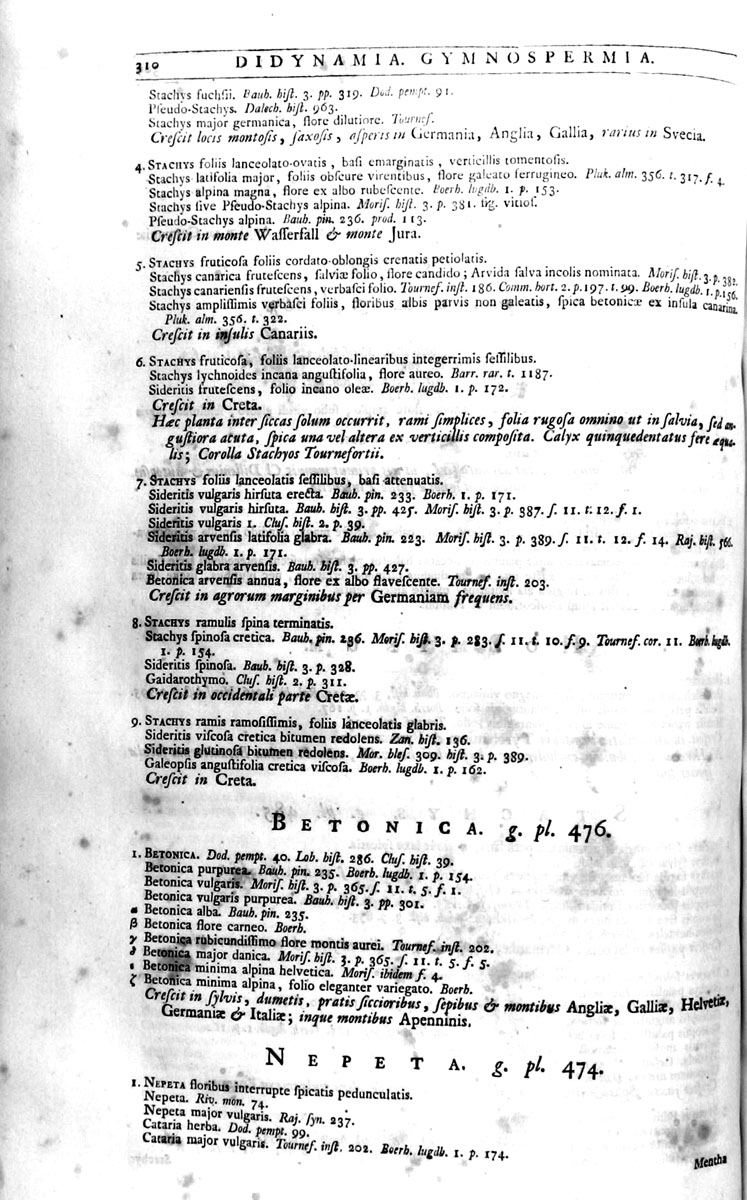 310 DIDYNAMIA. GYMNOSPERMIA.
Stachys fuchſii. Bauh. hiſt. 3. pp. 319. Dod. pempt. 91.
Pſeudo-Stachys. Dalech. hiſt. 963.
Stachys major germanica, flore dilutiore. Tournef.
Creſcit locis montoſis, ſaxoſis, aſperis in Germania, Anglia, Gallia, rarius in Svecia.
4. STACHYS foliis lanceolato-ovatis, baſi emarginatis, verticillis tomentoſis.
Stachys latifolia major, foliis obſcure virentibus, flore galeato ferrugineo. Pluk. alm. 356. t. 317. f. 4.
Stachys alpina magna, flore ex albo rubeſcente. Boerh. lugdb. 1. p. 153.
Stachys ſive Pſeudo-Stachys alpina. Moriſ. hiſt. 3. p. 381. fig. vitioſ.
Pſeudo-Stachys alpina. Bauh. pin. 236. prod. 113.
Creſcit in monte Waſſerfall & monte Jura.
5. STACHYS fruticoſa foliis cordato-oblongis crenatis petiolatis.
Stachys canarica fruteſcens, ſalviæ folio, flore candido; Arvida ſalva incolis nominata. Moriſ. hiſt. 3. p. 382.
Stachys canarienſis fruteſcens, verbaſci folio. Tournef. inſt. 186. Comm. hort. 2. p. 197. t. 99. Boerh. lugdb. 1. p. 156.
Stachys ampliſſimis verbaſci foliis, floribus albis parvis non galeatis, ſpica betonicæ ex inſula canarina.
Pluk. alm. 356. t. 322.
Creſcit in inſulis Canariis.
6. STACHYS fruticoſa, foliis lanceolato-linearibus integerrimis ſeſſilibus.
Stachys lychnoides incana anguſtifolia, flore aureo. Barr. rar. t. 1187.
Sideritis fruteſcens, folio incano oleæ. Boerh. lugdb. 1. p. 172.
Creſcit in Creta.
Hæc planta inter ſiccas ſolum occurrit, rami ſimplices, folia rugoſa omnino ut in ſalvia, ſed an-
guſtiora acuta, ſpica una vel altera ex verticillis compoſita. Calyx quinquedentatus fere æqua-
lis; Corolla Stachyos Tournefortii.
7. STACHYS foliis lanceolatis ſeſſilibus, baſi attenuatis.
Sideritis vulgaris hirſuta erecta. Bauh. pin. 233. Boerh. 1. p. 171.
Sideritis vulgaris hirſuta. Bauh. hiſt. 3. pp. 425. Moriſ. hiſt. 3. p. 387. ſ. 11. t. 12. f. 1.
Sideritis vulgaris 1. Cluſ. hiſt. 2. p. 39.
Sideritis arvenſis latifolia glabra. Bauh. pin. 223. Moriſ. hiſt. 3. p. 389. ſ. 11. t. 12. f. 14. Raj. hiſt. 566.
Boerh. lugdb. 1. p. 171.
Sideritis glabra arvenſis. Bauh. hiſt. 3. pp. 427.
Betonica arvenſis annua, flore ex albo flaveſcente. Tournef. inſt. 203.
Creſcit in agrorum marginibus per Germaniam frequens.
8. STACHYS ramulis ſpina terminatis.
Stachys ſpinoſa cretica. Bauh. pin. 236. Moriſ. hiſt. 3. p. 283. ſ. 11. t. 10. f. 9. Tournef. cor. 11. Boerh. lugdb.
1. p. 154.
Sideritis ſpinoſa. Bauh. hiſt. 3. p. 328.
Gaidarothymo. Cluſ. hiſt. 2. p. 311.
Creſcit in occidentali parte Cretæ.
9. STACHYS ramis ramoſiſſimis, foliis lanceolatis glabris.
Sideritis viſcoſa cretica bitumen redolens. Zan. hiſt. 136.
Sideritis glutinoſa bitumen redolens. Mor. bleſ. 309. hiſt. 3. p. 389.
Galeopſis anguſtifolia cretica viſcoſa. Boerh. lugdb. 1. p. 162.
Creſcit in Creta.
BETONICA. g. pl. 476.
1. BETONICA. Dod. pempt. 40. Lob. hiſt. 286. Cluſ. hiſt. 39.
Betonica purpurea. Bauh. pin. 235. Boerh. lugdb. 1. p. 154.
Betonica vulgaris. Moriſ. hiſt. 3. p. 365. ſ. 11. t. 5. f. 1.
Betonica vulgaris purpurea. Bauh. hiſt. 3. pp. 301.
α Betonica alba. Bauh. pin. 235.
β Betonica flore carneo. Boerh.
γ Betonica rubicundiſſimo flore montis aurei. Tournef. inſt. 202.
δ Betonica major danica. Moriſ. hiſt. 3. p. 365. ſ. 11. t. 5. f. 5.
ε Betonica minima alpina helvetica. Moriſ. ibidem f. 4.
ζ Betonica minima alpina, folio eleganter variegato. Boerh.
Creſcit in ſylvis, dumetis, pratis ſiccioribus, ſepibus & montibus Angliæ, Galliæ, Helvetiæ,
Germaniæ & Italiæ; inque montibus Apenninis.
NEPETA. g. pl. 474.
1. NEPETA floribus interrupte ſpicatis pedunculatis.
Nepeta. Riv. mon. 74.
Nepeta major vulgaris. Raj. ſyn. 237.
Cataria herba. Dod. pempt. 99.
Cataria major vulgaris. Tournef. inſt. 202. Boerh. lugdb. 1. p. 174.
Mentha